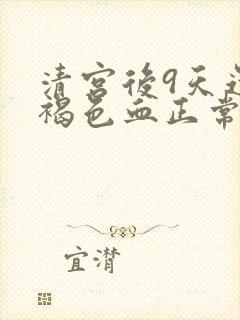 清宫後9天还
褐色血正常
宜潸